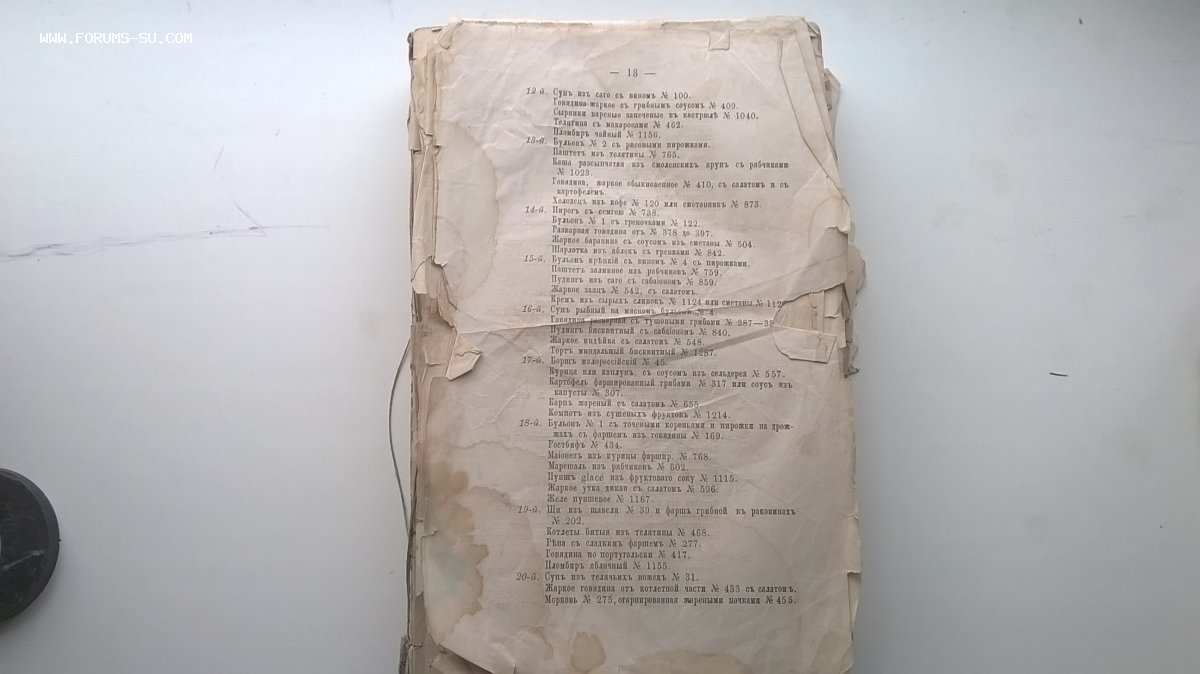 WWW.FORUMS-SU.COM
— 13 —
12-й. Супъ изъ саго съ виномъ № 100.
Говядина-жаркое съ грибнымъ соусомъ № 409.
Сырники вареные запеченые въ кастрюлѣ № 1040.
Телятина съ макаронами № 462.
Пломбиръ чайный № 1156.
13-й. Бульонъ № 2 съ рисовыми пирожками.
Паштетъ изъ телятины № 765.
Каша разсыпчатая изъ смоленскихъ крупъ съ рябчиками
№ 1023.
Говядина, жаркое обыкновенное № 410, съ салатомъ и съ
картофелемъ.
Холодецъ изъ кофе № 120 или сметанникъ № 873.
14-й. Пирогъ съ семгою № 738.
Бульонъ № 1 съ греночками № 122.
Разварная говядина отъ № 378 до 397.
Жаркое баранина съ соусомъ изъ сметаны № 504.
Шарлотка изъ яблокъ съ гренками № 842.
15-й. Бульонъ крѣпкій съ виномъ № 4 съ пирожками.
Паштетъ заливное изъ рябчиковъ № 759.
Пудингъ изъ саго съ сабаіономъ № 859.
Жаркое заяцъ № 542, съ салатомъ.
Кремъ изъ сырыхъ сливокъ № 1124 или сметаны № 112
16-й. Супъ рыбный на мясномъ бульонѣ № 4.
Говядина разварная съ тушоными грибами № 387—38
Пудингъ бисквитный съ сабаіономъ № 840.
Жаркое индѣйка съ салатомъ № 548.
Тортъ миндальный бисквитный № 1287.
17-й. Борщъ малороссійскій № 45.
Курица или каплунъ, съ соусомъ изъ сельдерея № 557.
Картофель фаршированный грибами № 317 или соусъ изъ
капусты № 307.
Карпъ жареный съ салатомъ № 655.
Компотъ изъ сушеныхъ фруктовъ № 1214.
18-й. Бульонъ № 1 съ точеными кореньями и пирожки на дрож-
жахъ съ фаршемъ изъ говядины № 169.
Ростбифъ № 434.
Маіонезъ изъ курицы фаршир. № 768.
Марешаль изъ рябчиковъ № 602.
Пуншъ glacé изъ фруктоваго соку № 1115.
Жаркое утка дикая съ салатомъ № 596.
Желе пуншевое № 1167.
19-й. Щи изъ щавеля № 39 и фаршъ грибной въ раковинахъ
№ 202.
Котлеты битыя изъ телятины № 468.
Рѣпа съ сладкимъ фаршемъ № 277.
Говядина по португальски № 417.
Пломбиръ яблочный № 1155.
20-й. Супъ изъ телячьихъ ножекъ № 31.
Жаркое говядина отъ котлетной части № 433 съ салатомъ.
Морковь № 275, огарнированная жареными почками № 455.